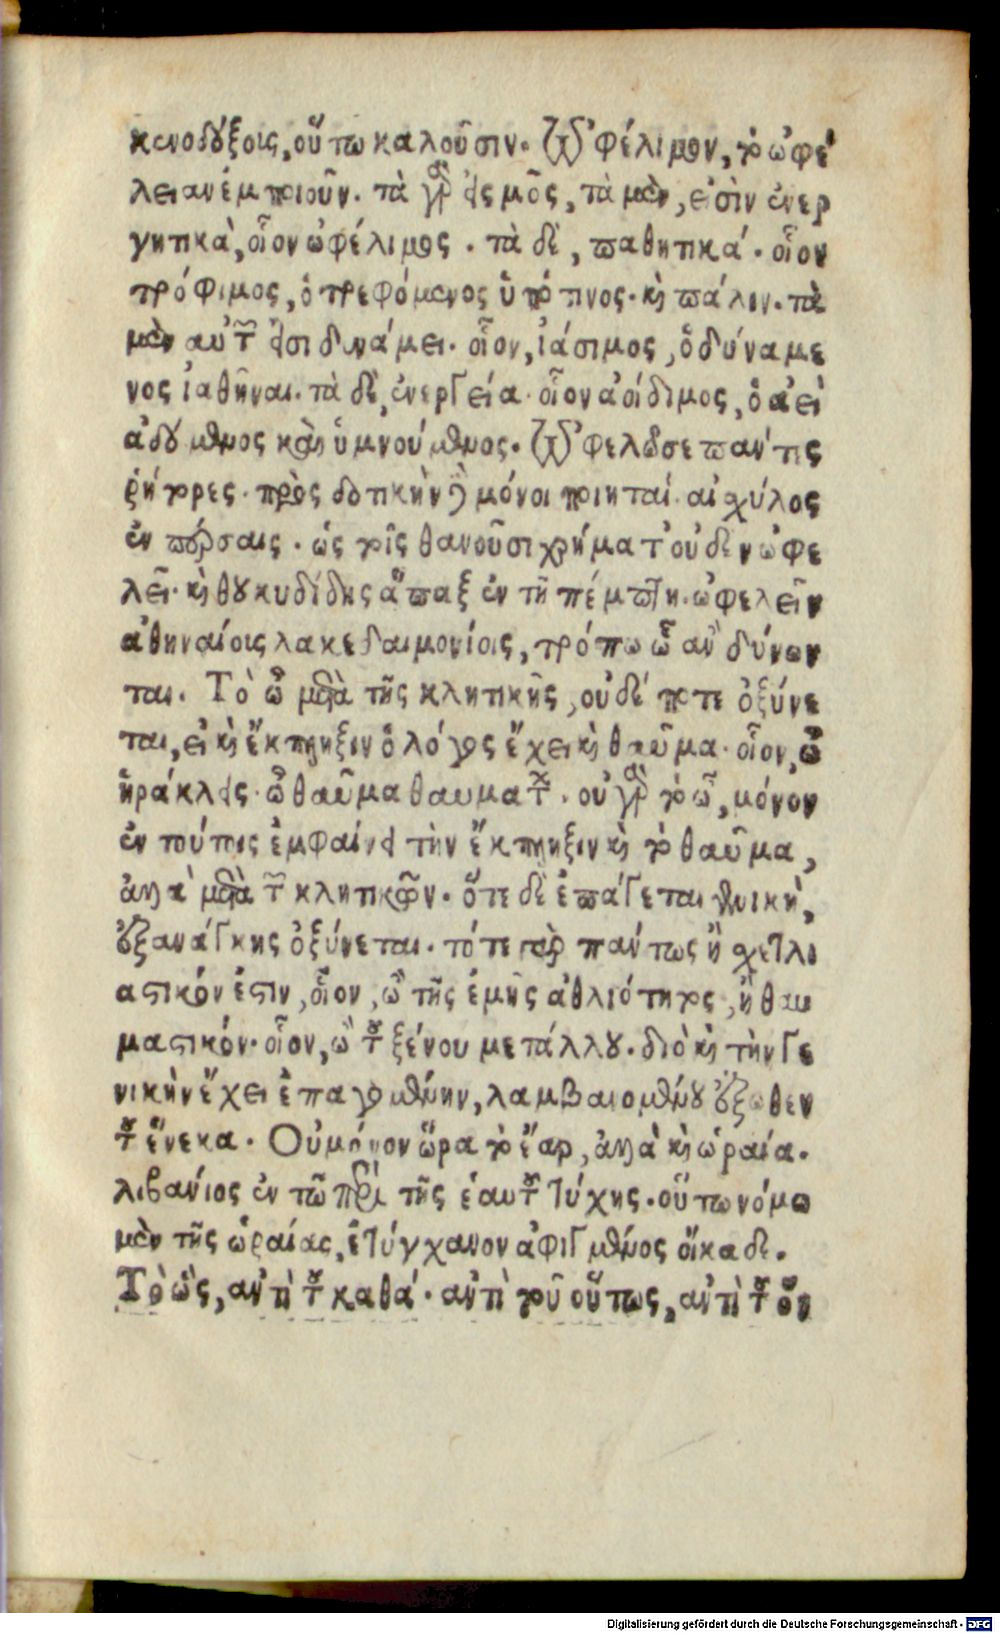 κενοδόξοις, οὕτω καλοῦσιν. Ὠφέλιμον, τὸ ὠφέ
λειαν ἐμποιοῦν. τὰ γὰρ εἰς μος, τὰ μὲν, εἰσὶν ἐνερ
γητικὰ, οἷον ὠφέλιμος. τὰ δὲ, παθητικά. οἷον
τρόφιμος, ὁ τρεφόμενος ὑπό τινος. καὶ πάλιν. τὰ
μὲν αὐτῶν εἰσι δυνάμει. οἷον, ἰάσιμος, ὁ δυνάμε
νος ἰαθῆναι. τὰ δὲ, ἐνεργείᾳ. οἷον ἀοίδιμος, ὁ ἀεὶ
ἀδόμενος καὶ ὑμνούμενος. Ὠφελῶ σε πάντες
ῥήτορες. πρὸς δοτικὴν δὲ μόνοι ποιηταί. αἰσχύλος
ἐν πέρσαις. ὡς τοῖς θανοῦσι χρήματ' οὐδὲν ὠφε
λεῖ. καὶ θουκυδίδης ἅπαξ ἐν τῇ πέμπτῃ. ὠφελεῖν
ἀθηναίοις λακεδαιμονίοις, τρόπῳ ᾧ ἂν δύνων
ται. Τὸ ὦ μετὰ τῆς κλητικῆς, οὐδέποτε ὀξύνε
ται, εἰ καὶ ἔκπληξιν ὁ λόγος ἔχει καὶ θαῦμα. οἷον, ὦ
ἡράκλεις. ὦ θαῦμα θαυμάτων. οὐ γὰρ τὸ ὦ, μόνον
ἐν τούτοις ἐμφαίνει τὴν ἔκπληξιν καὶ τὸ θαῦμα,
ἀλλὰ μετὰ τῶν κλητικῶν. ὅτε δὲ ἐπάγεται γενικὴ,
ἐξανάγκης ὀξύνεται. τότε γὰρ πάντως ἢ σχετλι
αστικόν ἐστιν, οἷον, ὢ τῆς ἐμῆς ἀθλιότητος, ἢ θαυ
μαστικόν. οἷον, ὢ τοῦ ξένου μετάλλου. διὸ καὶ τὴν γε
νικὴν ἔχει ἐπαγομένην, λαμβαιομένου ἔξωθεν
τοῦ ἕνεκα. Οὐ μόνον ὥρα τὸ ἔαρ, ἀλλὰ καὶ ὡραία.
λιβανίος ἐν τῷ περὶ τῆς ἑαυτοῦ τύχης. οὕτω νόμῳ
μὲν τῆς ὡραίας, ἐτύγχανον ἀφιγμένος οἴκαδε.
Τὸ ὡς, ἀντὶ τοῦ καθά. ἀντὶ τοῦ οὕτως, ἀντὶ τοῦ ὃν
Digitalisierung gefördert durch die Deutsche Forschungsgemeinschaft - DFG